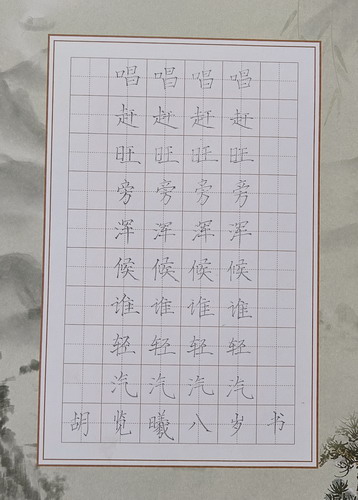 唱唱唱唱
赶赶赶赶
旺旺旺旺
旁旁旁旁
浑浑浑浑
候候候候
谁谁谁谁
轻轻轻轻
汽汽汽汽
胡览曦八岁书